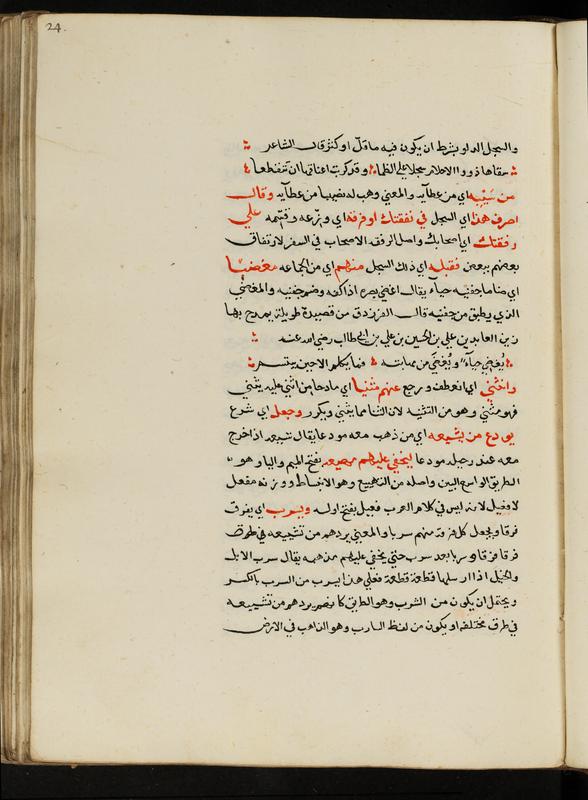 24.
والسجل الدلو بشرط ان يكون فيه ماء قلّ او كثر قال الشاعر
وقد كربت اعناقها ان تقطعا
من سَيْبِه اي من عطايه والمعنى وهب له نصيبا من عطايه وقال
اصرف هذا اي السجل في نفقتك او فرقه اي وزّعه وقسمه على
رفقتك اي اصحابك واصل الرفقه الاصحاب في السفر لارتفاق
بعضهم ببعض فقبله اي ذلك السجل منهم اي من الجماعه مغضيا
اي ضاما جفنيه حيآء يقال اغضى بصره اذا كفه وضم جفنيه والمغضي
الذي يطبق من جفنيه قال الفرزدق من قصيدة طويلة يمدح بها
زين العابدين علي بن الحسين بن علي بن ابي طالب رضي الله عنه
يُغضي حيآءً ويُغضَى من مهابته فما يكلم الا حين يبتسم
وانثنى اي انعطف ورجع عنهم مثنيا اي مادحا من اثنى عليه يثني
فهو مثني وهو من التثنيه لان الثنا مما يثنى ويكرر وجعل اي شرع
يودع من يشيعه اي من ذهب معه مودعا يقال شيعه اذا خرج
معه عند رحيله مودعا ليخفي عليهم مهيعه بفتح الميم واليا وهو
الطريق الواسع البين واصله من التهييع وهو الانبساط ووزنه مفعل
لا فعيل لانه ليس في كلام العرب فعيل بفتح اوله ويسرب اي يفرق
فرقا ويجعل كل فرقة منهم سربا والمعنى يردهم من تشييعه في طرق
فرقا فرقا وسربا بعد سرب حتى يخفى عليهم مذهبه يقال سرب الابل
والخيل اذا ارسلها قطعة قطعة فعلى هذا يسرب من السرب بالكسر
ويحتمل ان يكون من السرب وهو الطريق كانه يردهم من تشييعه
في طرق مختلفه او يكون من لفظ السارب وهو الذاهب في الارض